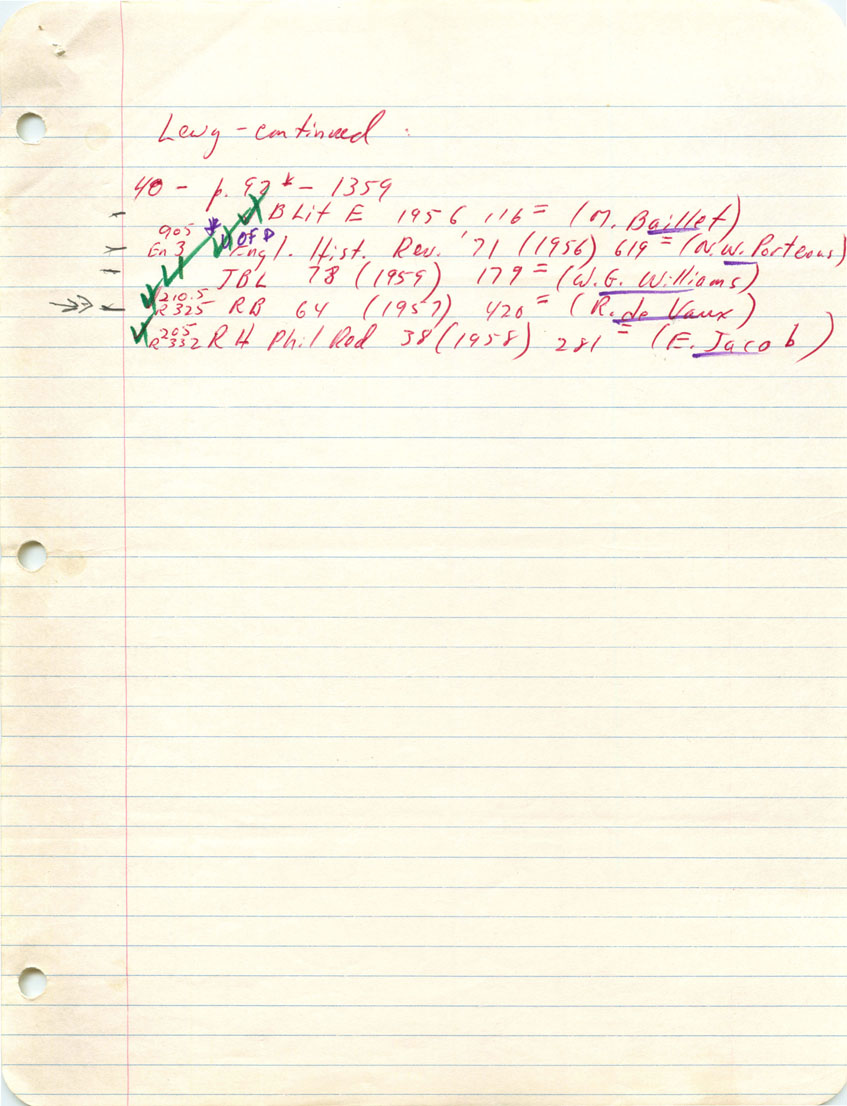 Lewy - continued :
40 - p. 92* - 1359
B Lit E 1956 116 = (M. Baillet)
905 * OFD
En 3 Engl. Hist. Rev. '71 (1956) 619 = (N.W. Porteous)
JBL 78 (1959) 179 = (W.G. Williams)
210.5
R 325 RB 64 (1957) 420 = (R. de Vaux)
205
R 332 R H Phil Rel 38 (1958) 281 = (E. Jacob)